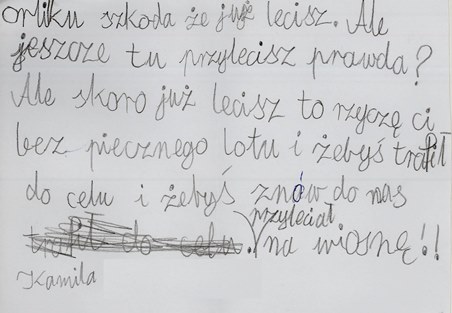 orliku szkoda że już lecisz. Ale
jeszcze tu przylecisz prawda?
Ale skoro już lecisz to rzyczę ci
bez piecznego lotu i żebyś trafił
do celu i żebyś znów do nas
przyleciał
trafił do celu. na wiosnę!!
Kamila